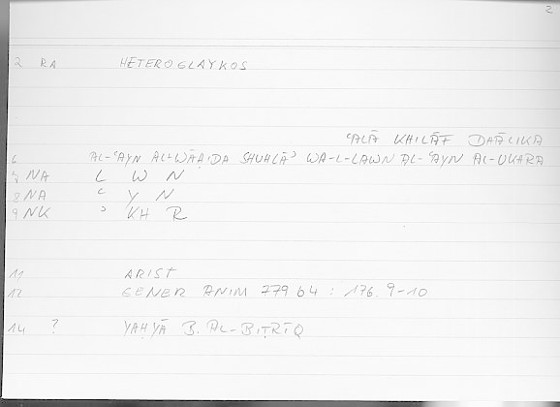 2
2 RA HETEROGLAYKOS
ʿALĀ KHILĀF DHĀLIKA
6 AL-ʿAYN AL-WĀḤIDA SHUHLĀʾ WA-L-LAWN AL-ʿAYN AL-UKHRA
7 NA L W N
8 NA ʿ Y N
9 NK ʾ KH R
11 ARIST
12 GENER ANIM 779 b4 : 176. 9-10
14 ? YAḤYĀ B. AL-BIṬRĪQ